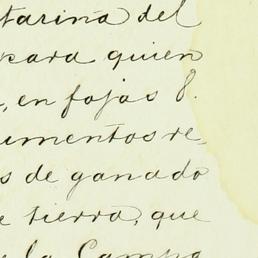 tarina del
para quien
, en fojas 8.
umentos re-
s de ganado
e tierra, que
e la Campa